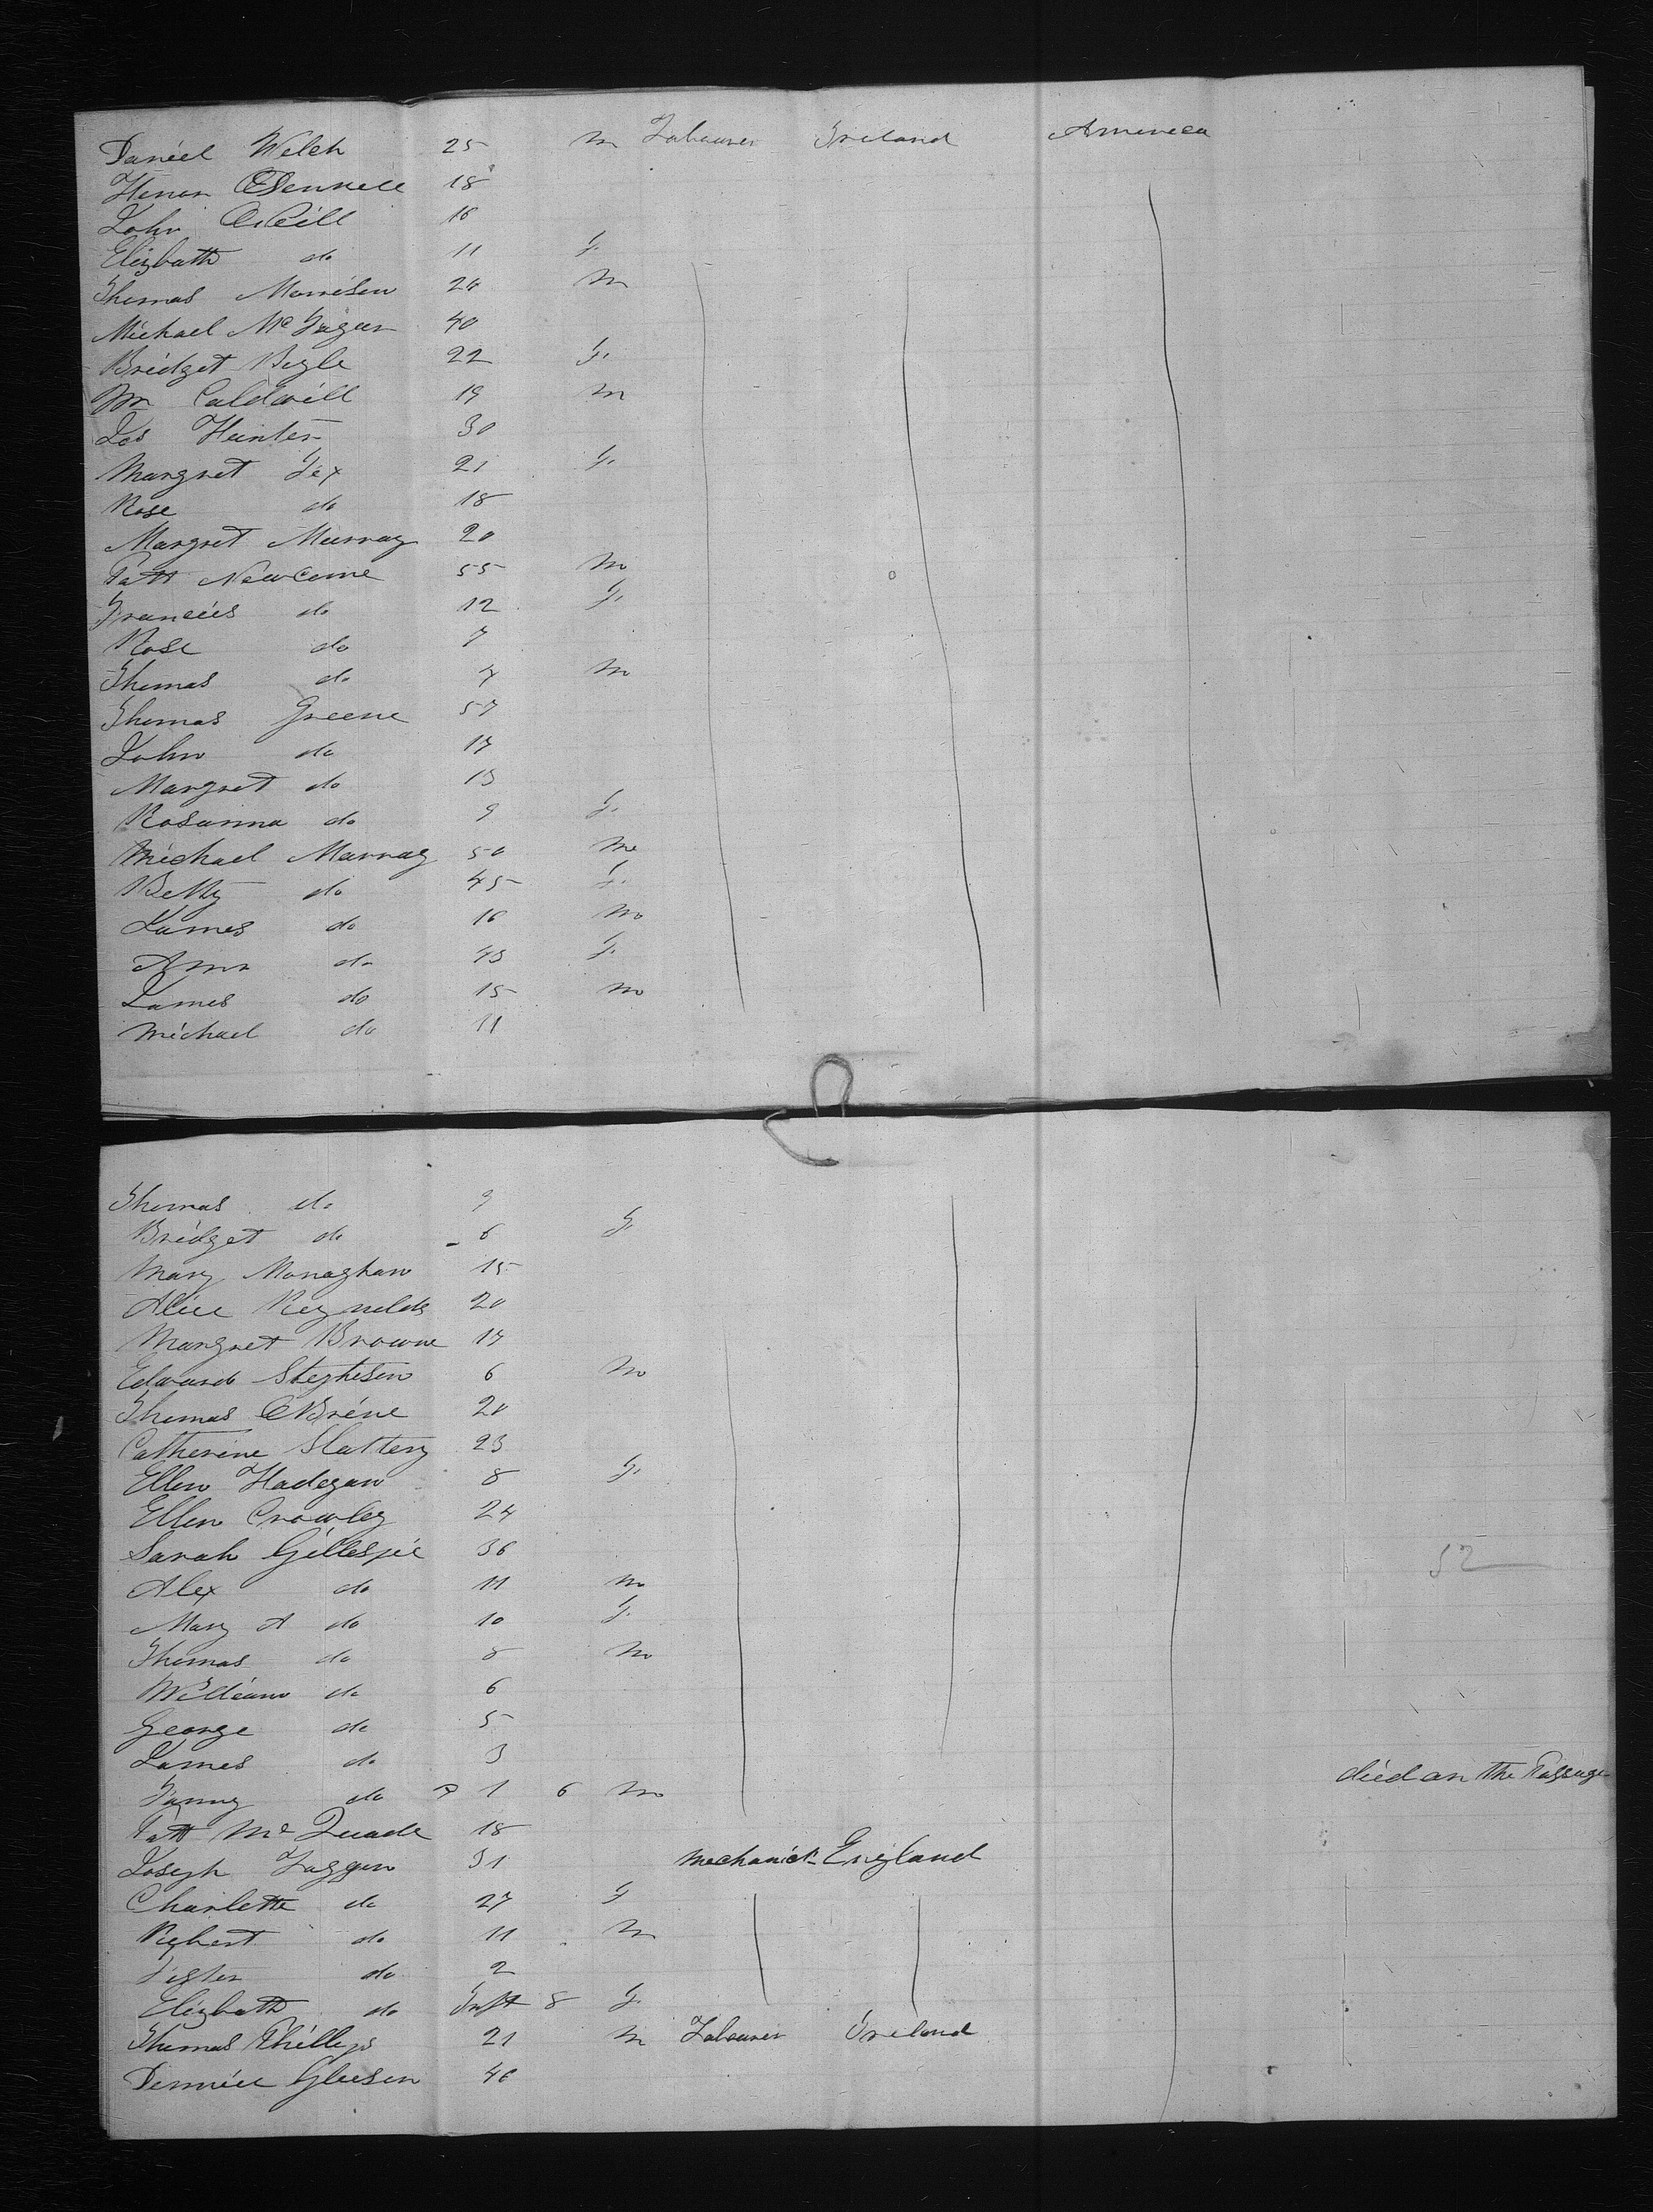 Daniel Welch 25 m Labourer Ireland America
Henor 18
John ONeill 16
Elizbath do 11 f.
Thomas Morrisen 20 m
Michael Mc Gagan 40
Bridget Begle 22 f.
Wm Caldwill 19 m
Jos Hunter 30
Margret Fex 21 f.
Rose do 18
Margret Murray 20
Patt NewCome 55 m
Francies do 12 f.
Rose do 7
Thomas do 4 m
Thomas Greene 57
John do 17
Margret do 13
Rosanna do 9 f.
Michael Marray 50 m
Betty do 45 f.
James do 16 m
Ann do 43 f.
James do 15 m
Michael do 11
Thomas do 9
Bridget do 6 f.
Mary Monaghan 15
Alice Reynolds 20
Margret Browne 17
Edward Stephesen 6 m
Thomas OBrine 20
Catherine Slattery 23
Ellen Hadegan 8 f.
Ellen Crowley 24
Sarah Gillespie 36
52
Alex do 11 m
Mary A do 10 f.
Thomas do 8 m
William do 6
George do 5
James do 3
Fanny do 1 6 m died on the Passage
Patt Mc Quade 18
Joseph Jaggen 31 Mechanick England
Charlette do 27 f
Robert do 11 m
do 2
Elizbath do Inft 8 f.
Thomas Phillips 21 m Labourer Ireland
Dennice Gleesen 40